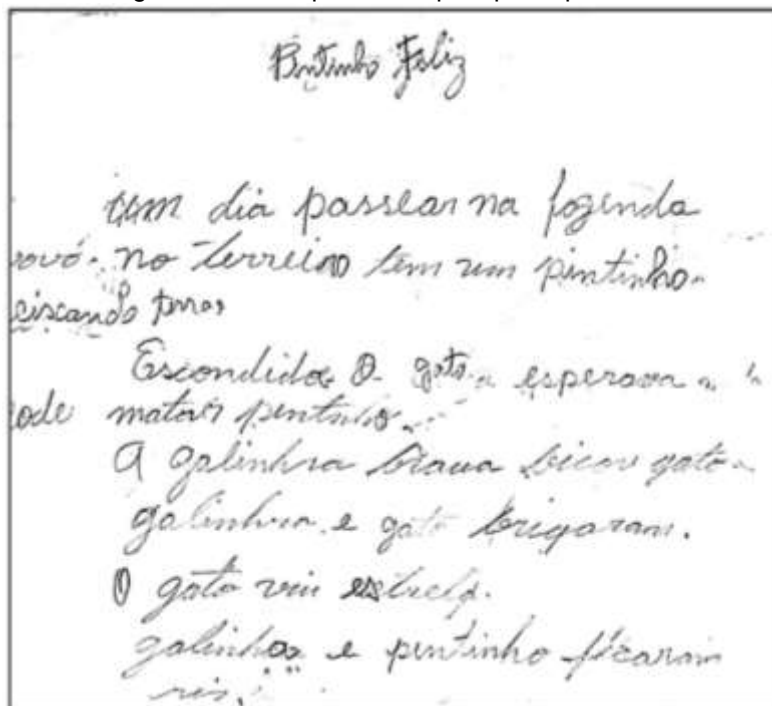 Pintinho Feliz
um dia passear na fazenda
vovó. no terreiro tem um pintinho
ciscando
Escondido O gato esperava
matar pintinho
A galinha brava bicou gato
galinha e gato brigaram.
O gato viu estrela.
galinha e pintinho ficaram